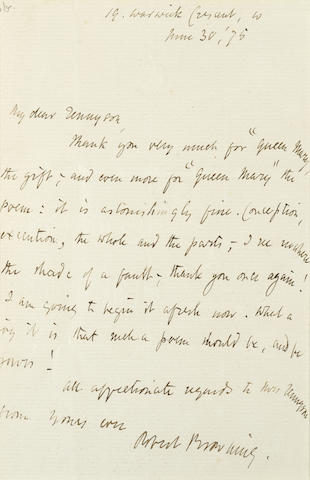 19. Warwick Crescent, W
June 30, '75
My dear Tennyson,
Thank you very much for "Queen Mary"
the gift, – and even more for "Queen Mary" the
poem: it is astonishingly fine. Conception,
execution, the whole and the parts, – I see nowhere
the shade of a fault, – thank you once again!
I am going to begin it afresh now. What a
joy it is that such a poem should be, and be
yours!
All affectionate regards to Mrs Tennyson
from yours ever
Robert Browning.